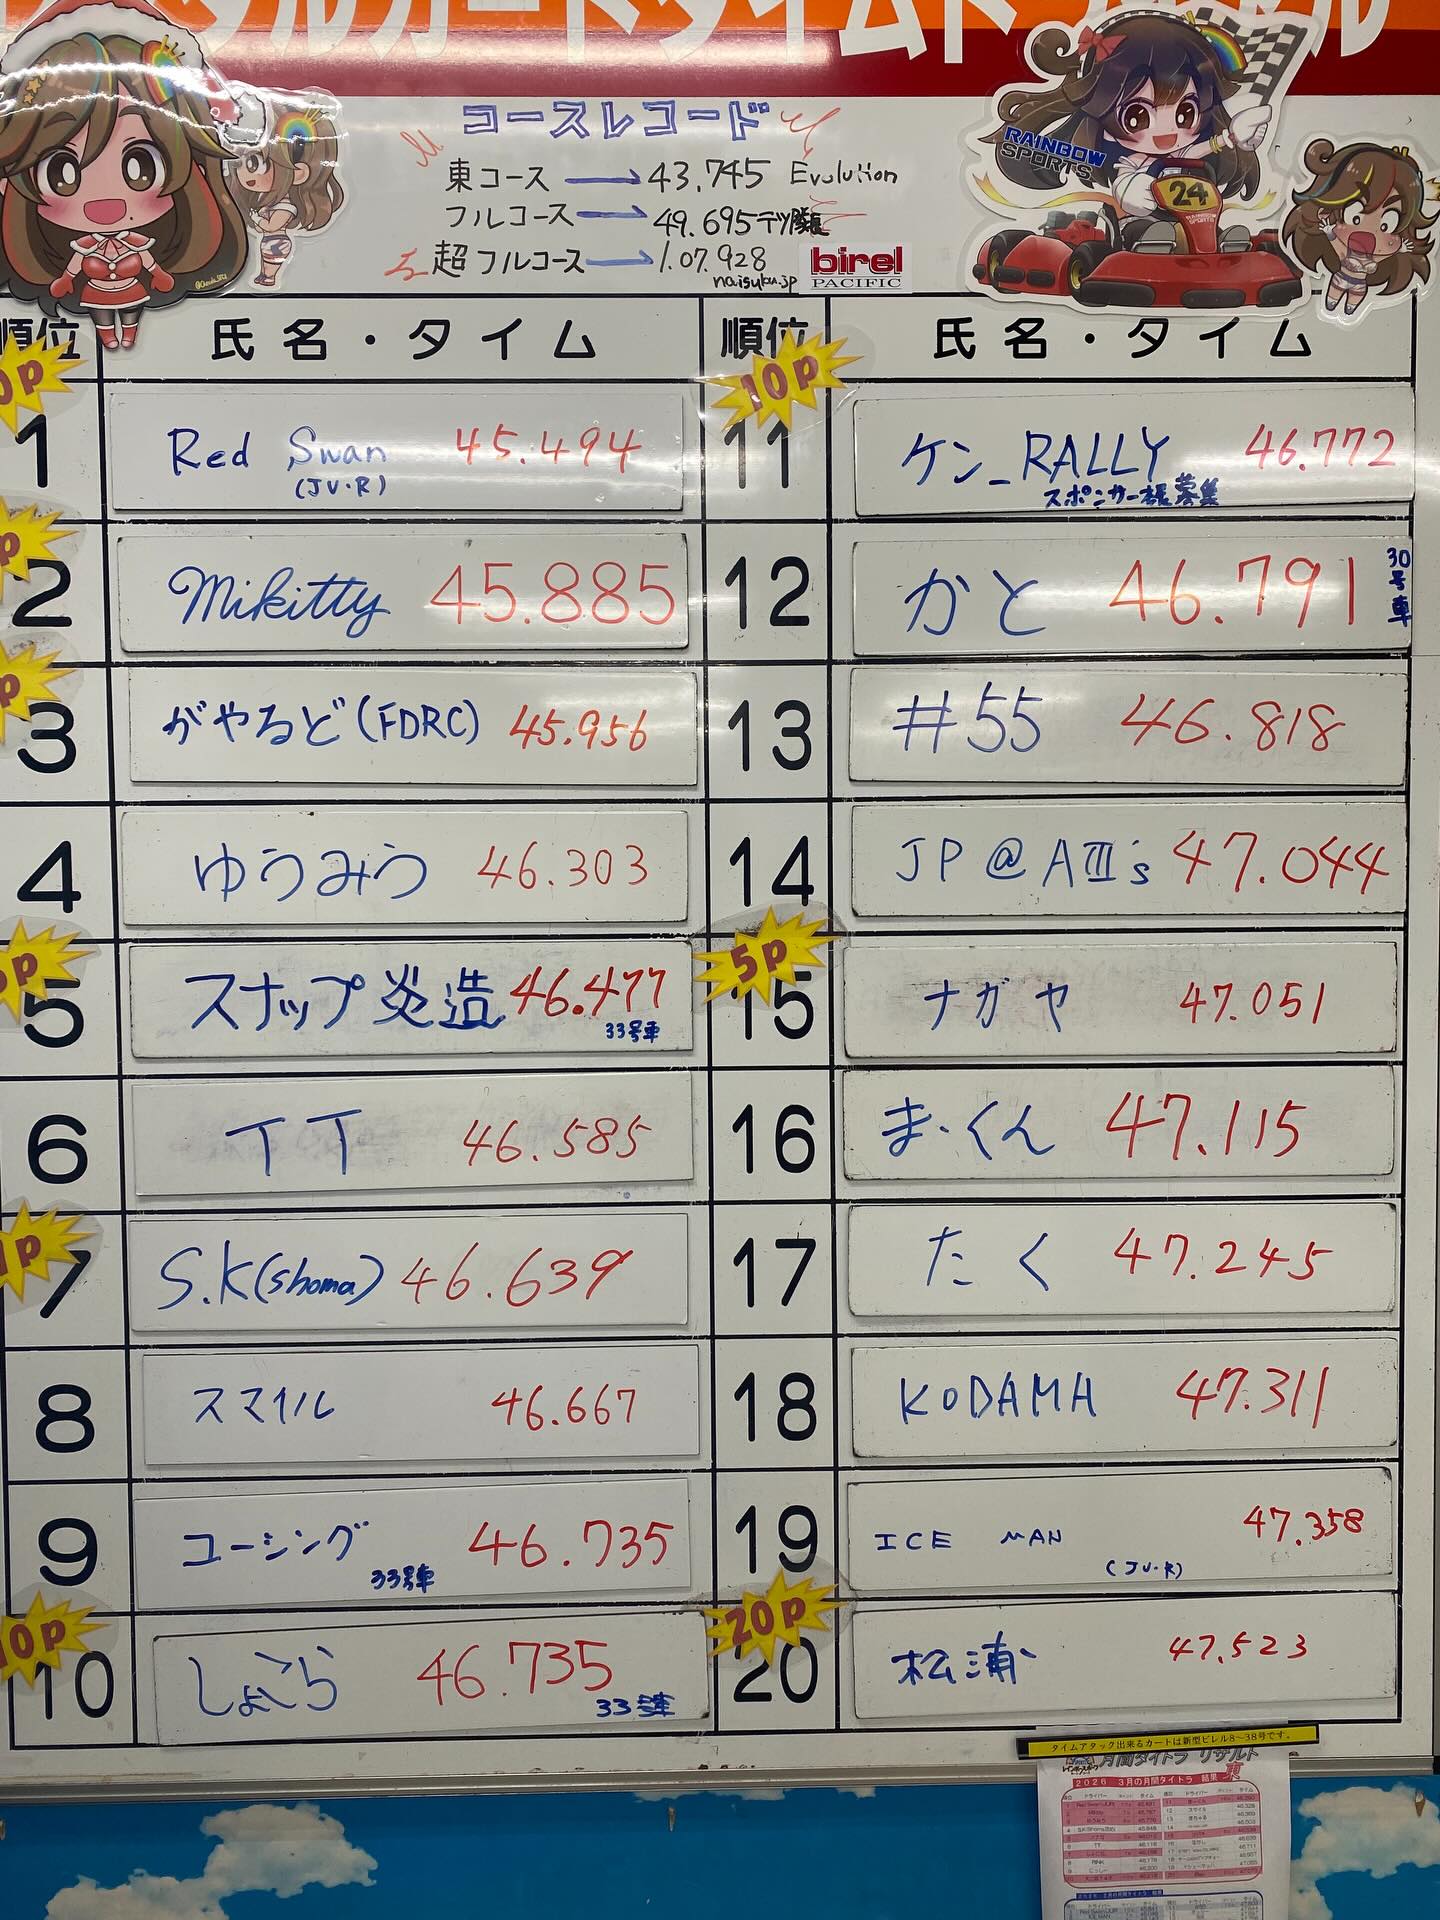 コースレコード
東コース → 43.745 Evolution
フルコース → 49.695 テツ隊長
超フルコース → 1.07.928
naisuku.jp
birel
PACIFIC
RAINBOW
SPORTS
24
RAINBOW
SPORTS
順位 氏名・タイム
1 Red Swan 45.494
(JV・R)
2 Mikitty 45.885
3 がやるど(FDRC) 45.956
4 ゆうみう 46.303
5 スナップ炎造 46.477
33号車
6 TT 46.585
7 S.K(Shoma) 46.639
8 スマイル 46.667
9 コーシング 46.735
33号車
10p
10 しょこら 46.735
33号車
順位 氏名・タイム
10p
11 ケン_RALLY 46.772
スポンサー様募集
12 かと 46.791
30号車
13 #55 46.818
14 JP@AⅢ's 47.044
5p
15 ナガヤ 47.051
16 ま・くん 47.115
17 たく 47.245
18 KODAMA 47.311
19 ICE MAN 47.358
(JV・R)
20p
20 松浦 47.523
タイムアタック出来るカートは新型ビレル8～38号です。
月間タイトラ リザルト
東
2026 3月の月間タイトラ 結果